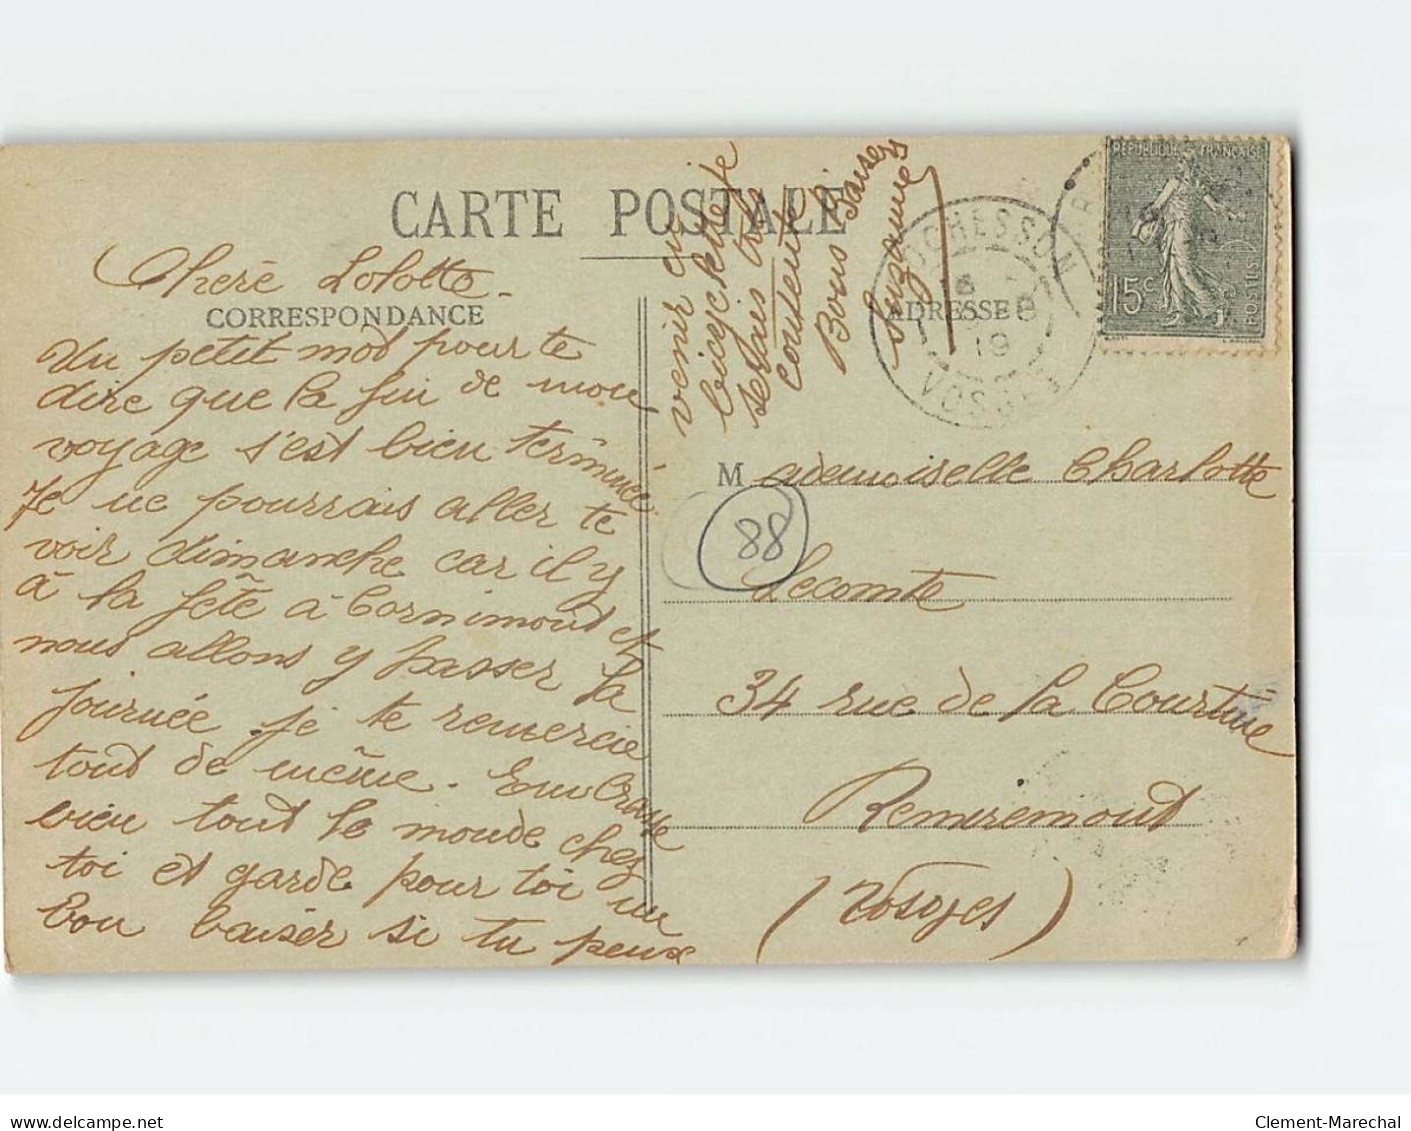 CARTE POSTALE
Cheré Lolotte.
CORRESPONDANCE
Un petit mod pour te
dire que la fin de mon
voyage s'est bien terminée.
Je ne pourrais aller te
voir dimanche car il y
à la fête à Cornimont et
nous allons y passer la
journée. je te remercie
tout de même. Embrasse
bien tout le monde chez
toi et garde pour toi un
bon baiser si tu peux
venir en
bicyclette je
serais très
contente
Bons Baisers
Suzanne
ADRESSE
ROCHESSON
18
19
VOSGES
RÉPUBLIQUE FRANÇAISE
15c
POSTES
Mademoiselle Charlotte
88
Lecomte
34 rue de la Courtine
Remiremont
(Vosges)
delcampe.net
Clement-Marechal